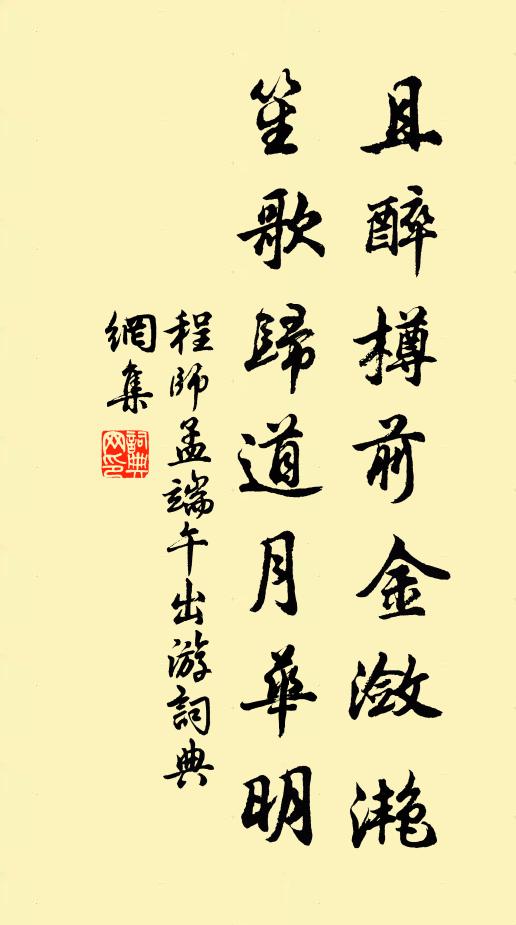 且醉樽前金潋滟
笙歌歸道月華明
程師孟端午出游詞典
網集
詞典
网印